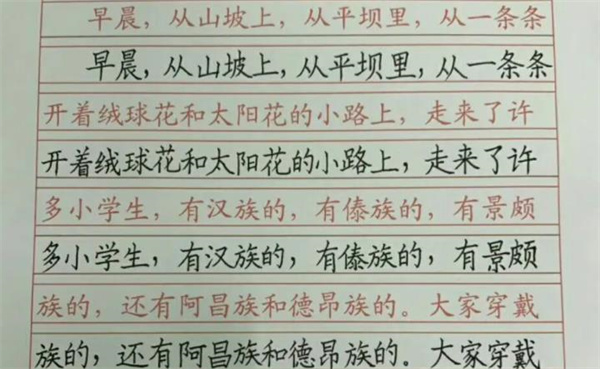 早晨，从山坡上，从平坝里，从一条条
早晨，从山坡上，从平坝里，从一条条
开着绒球花和太阳花的小路上，走来了许
开着绒球花和太阳花的小路上，走来了许
多小学生，有汉族的，有傣族的，有景颇
多小学生，有汉族的，有傣族的，有景颇
族的，还有阿昌族和德昂族的。大家穿戴
族的，还有阿昌族和德昂族的。大家穿戴